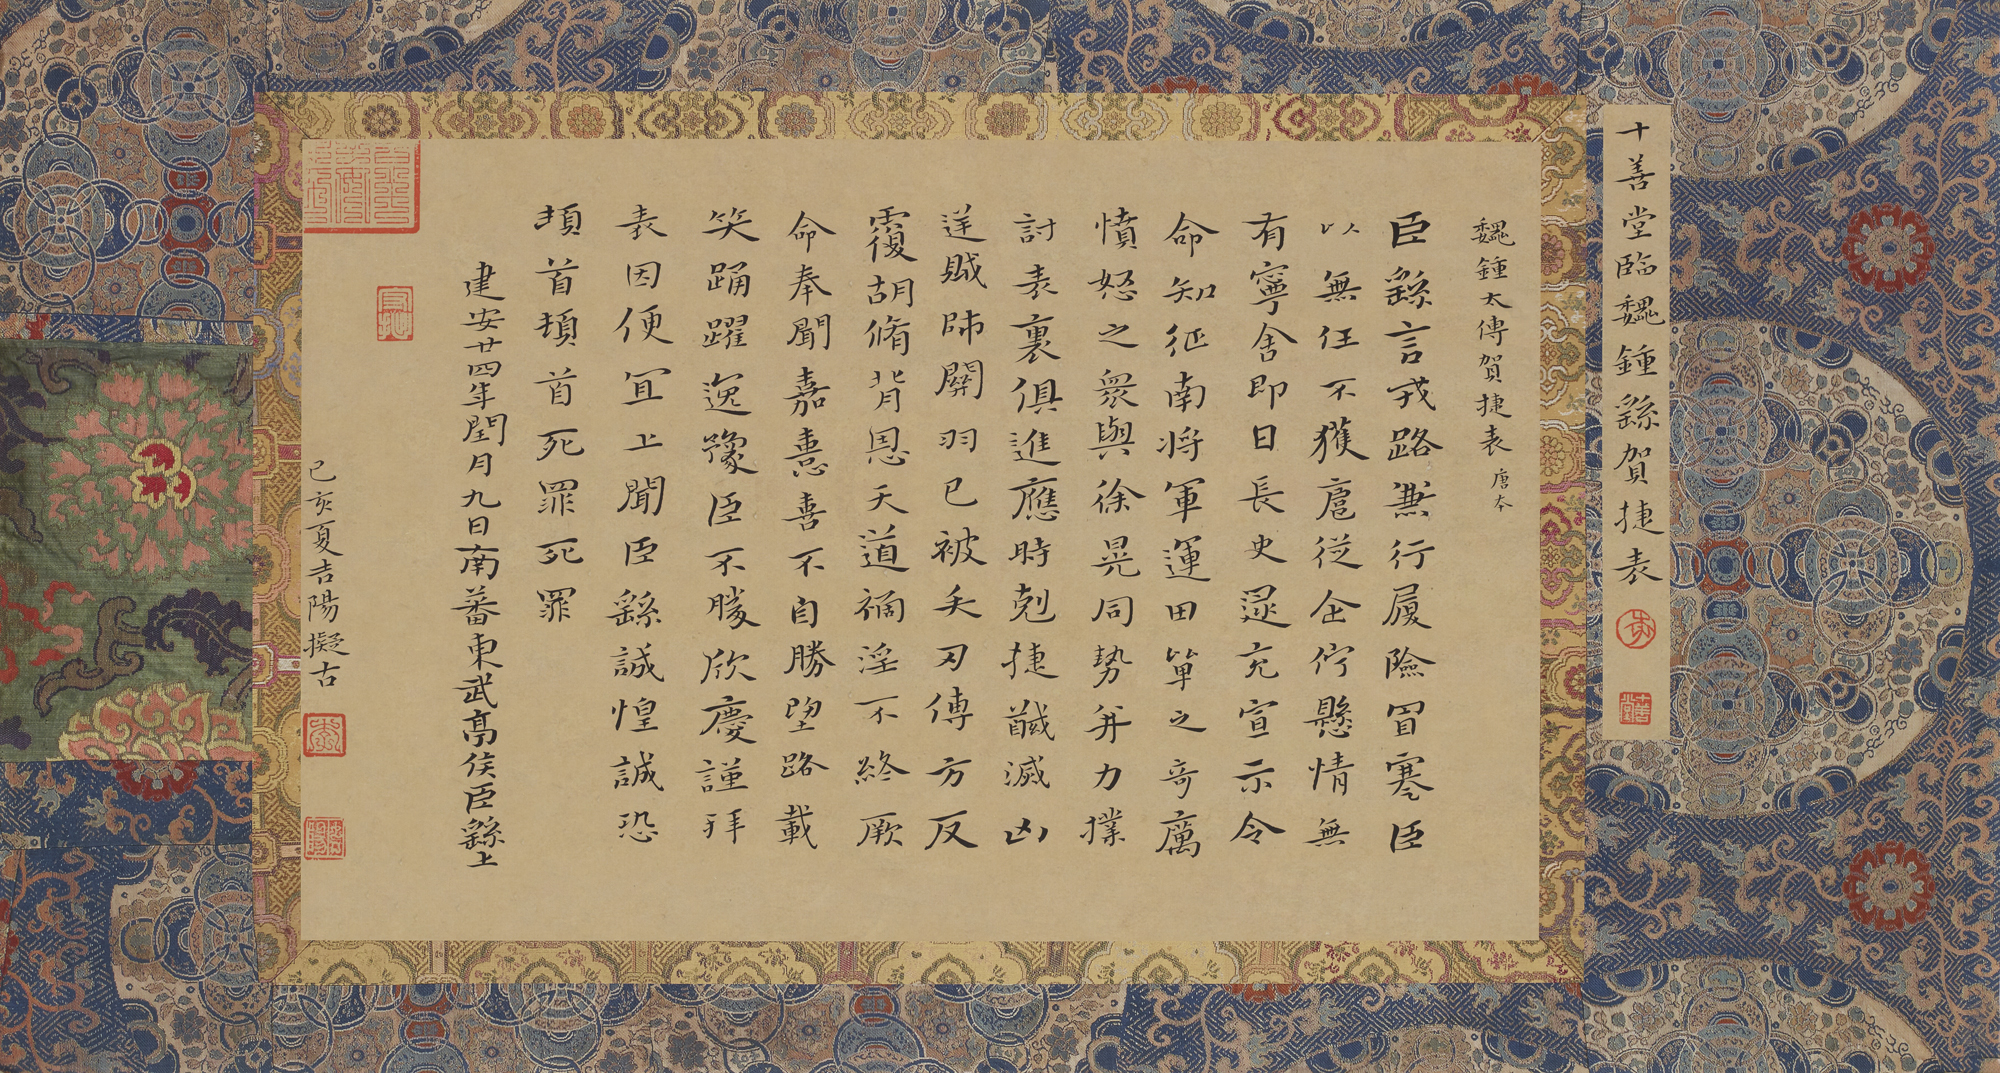 十善堂臨魏鍾繇賀捷表
魏鍾太傅賀捷表 唐本
臣繇言戎路兼行履險冒寒臣
以無任不獲扈從企佇懸情無
有寧舍即日長史逯充宣示令
命知征南将軍運田單之奇厲
憤怒之衆與徐晃同勢并力撲
討表裏俱進應時剋捷馘滅凶
逆賊帥關羽已被矢刃傅方反
覆胡脩背恩天道禍淫不終厥
命奉聞嘉憙喜不自勝望路載
笑踊躍逸豫臣不勝欣慶謹拜
表因便宜上聞臣繇誠惶誠恐
頓首頓首死罪死罪
建安廿四年閏月九日南蕃東武亭侯臣繇上
己亥夏吉陽擬古